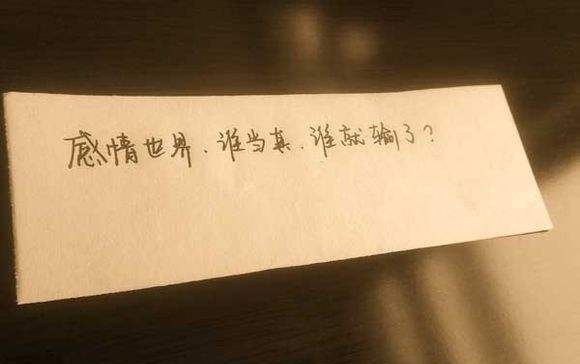 感情世界、谁当真、谁就输了?